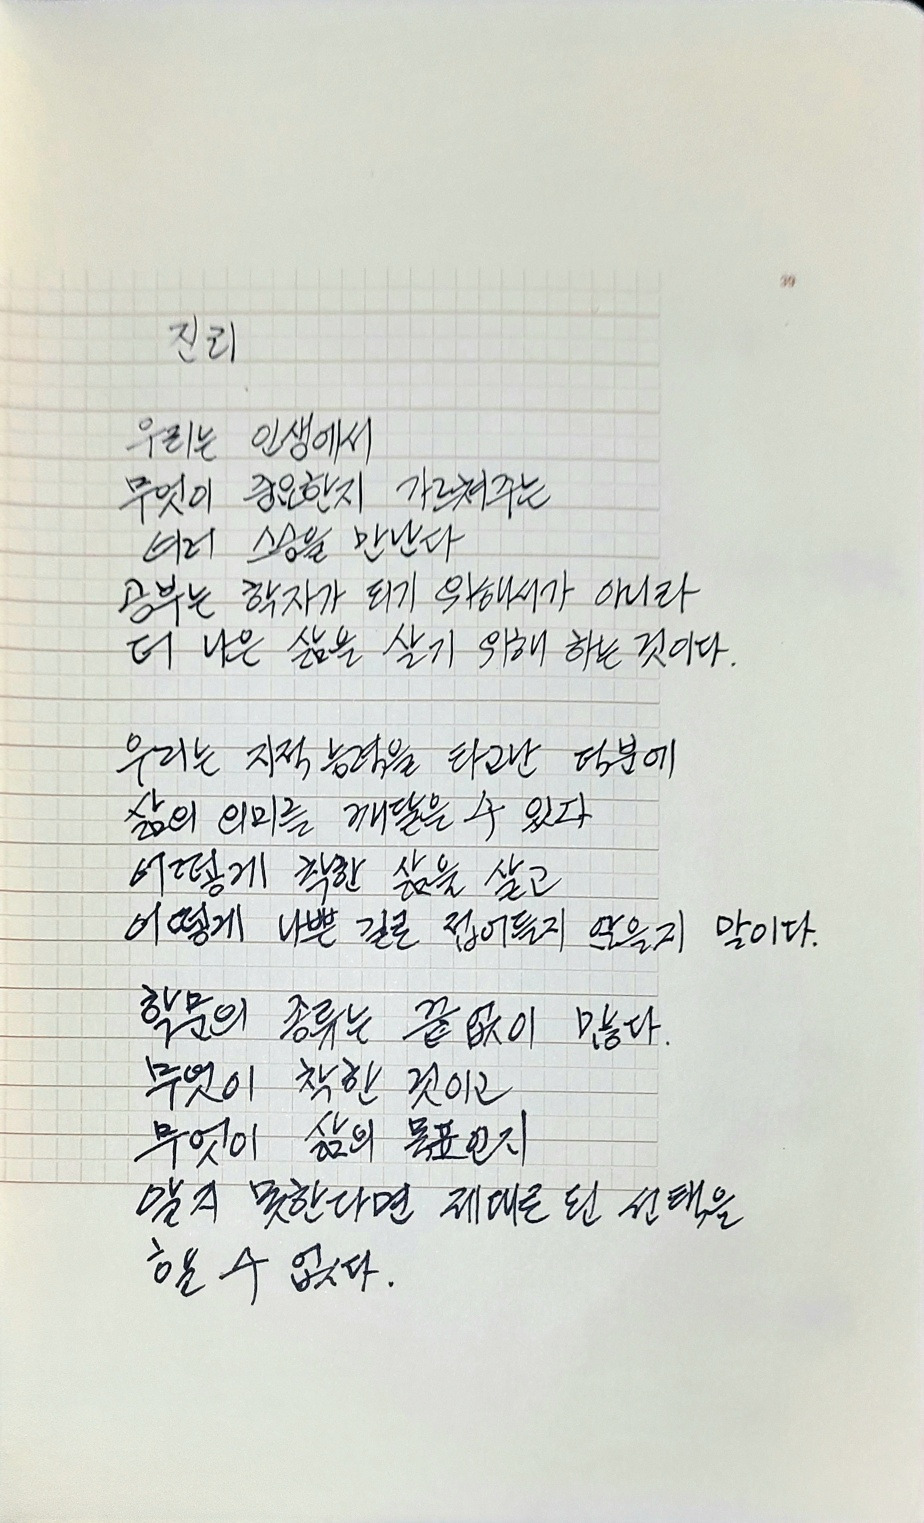 39
진리
우리는 인생에서
무엇이 중요한지 가르쳐주는
여러 스승을 만난다
공부는 학자가 되기 위해서가 아니라
더 나은 삶을 살기 위해 하는 것이다.
우리는 지적 능력을 타고난 덕분에
삶의 의미를 깨달을 수 있다
어떻게 착한 삶을 살고
어떻게 나쁜 길로 접어들지 않을지 말이다.
학문의 종류는 끝없이 많다.
무엇이 착한 것이고
무엇이 삶의 목표인지
알지 못한다면 제대로 된 선택을
할 수 없다.